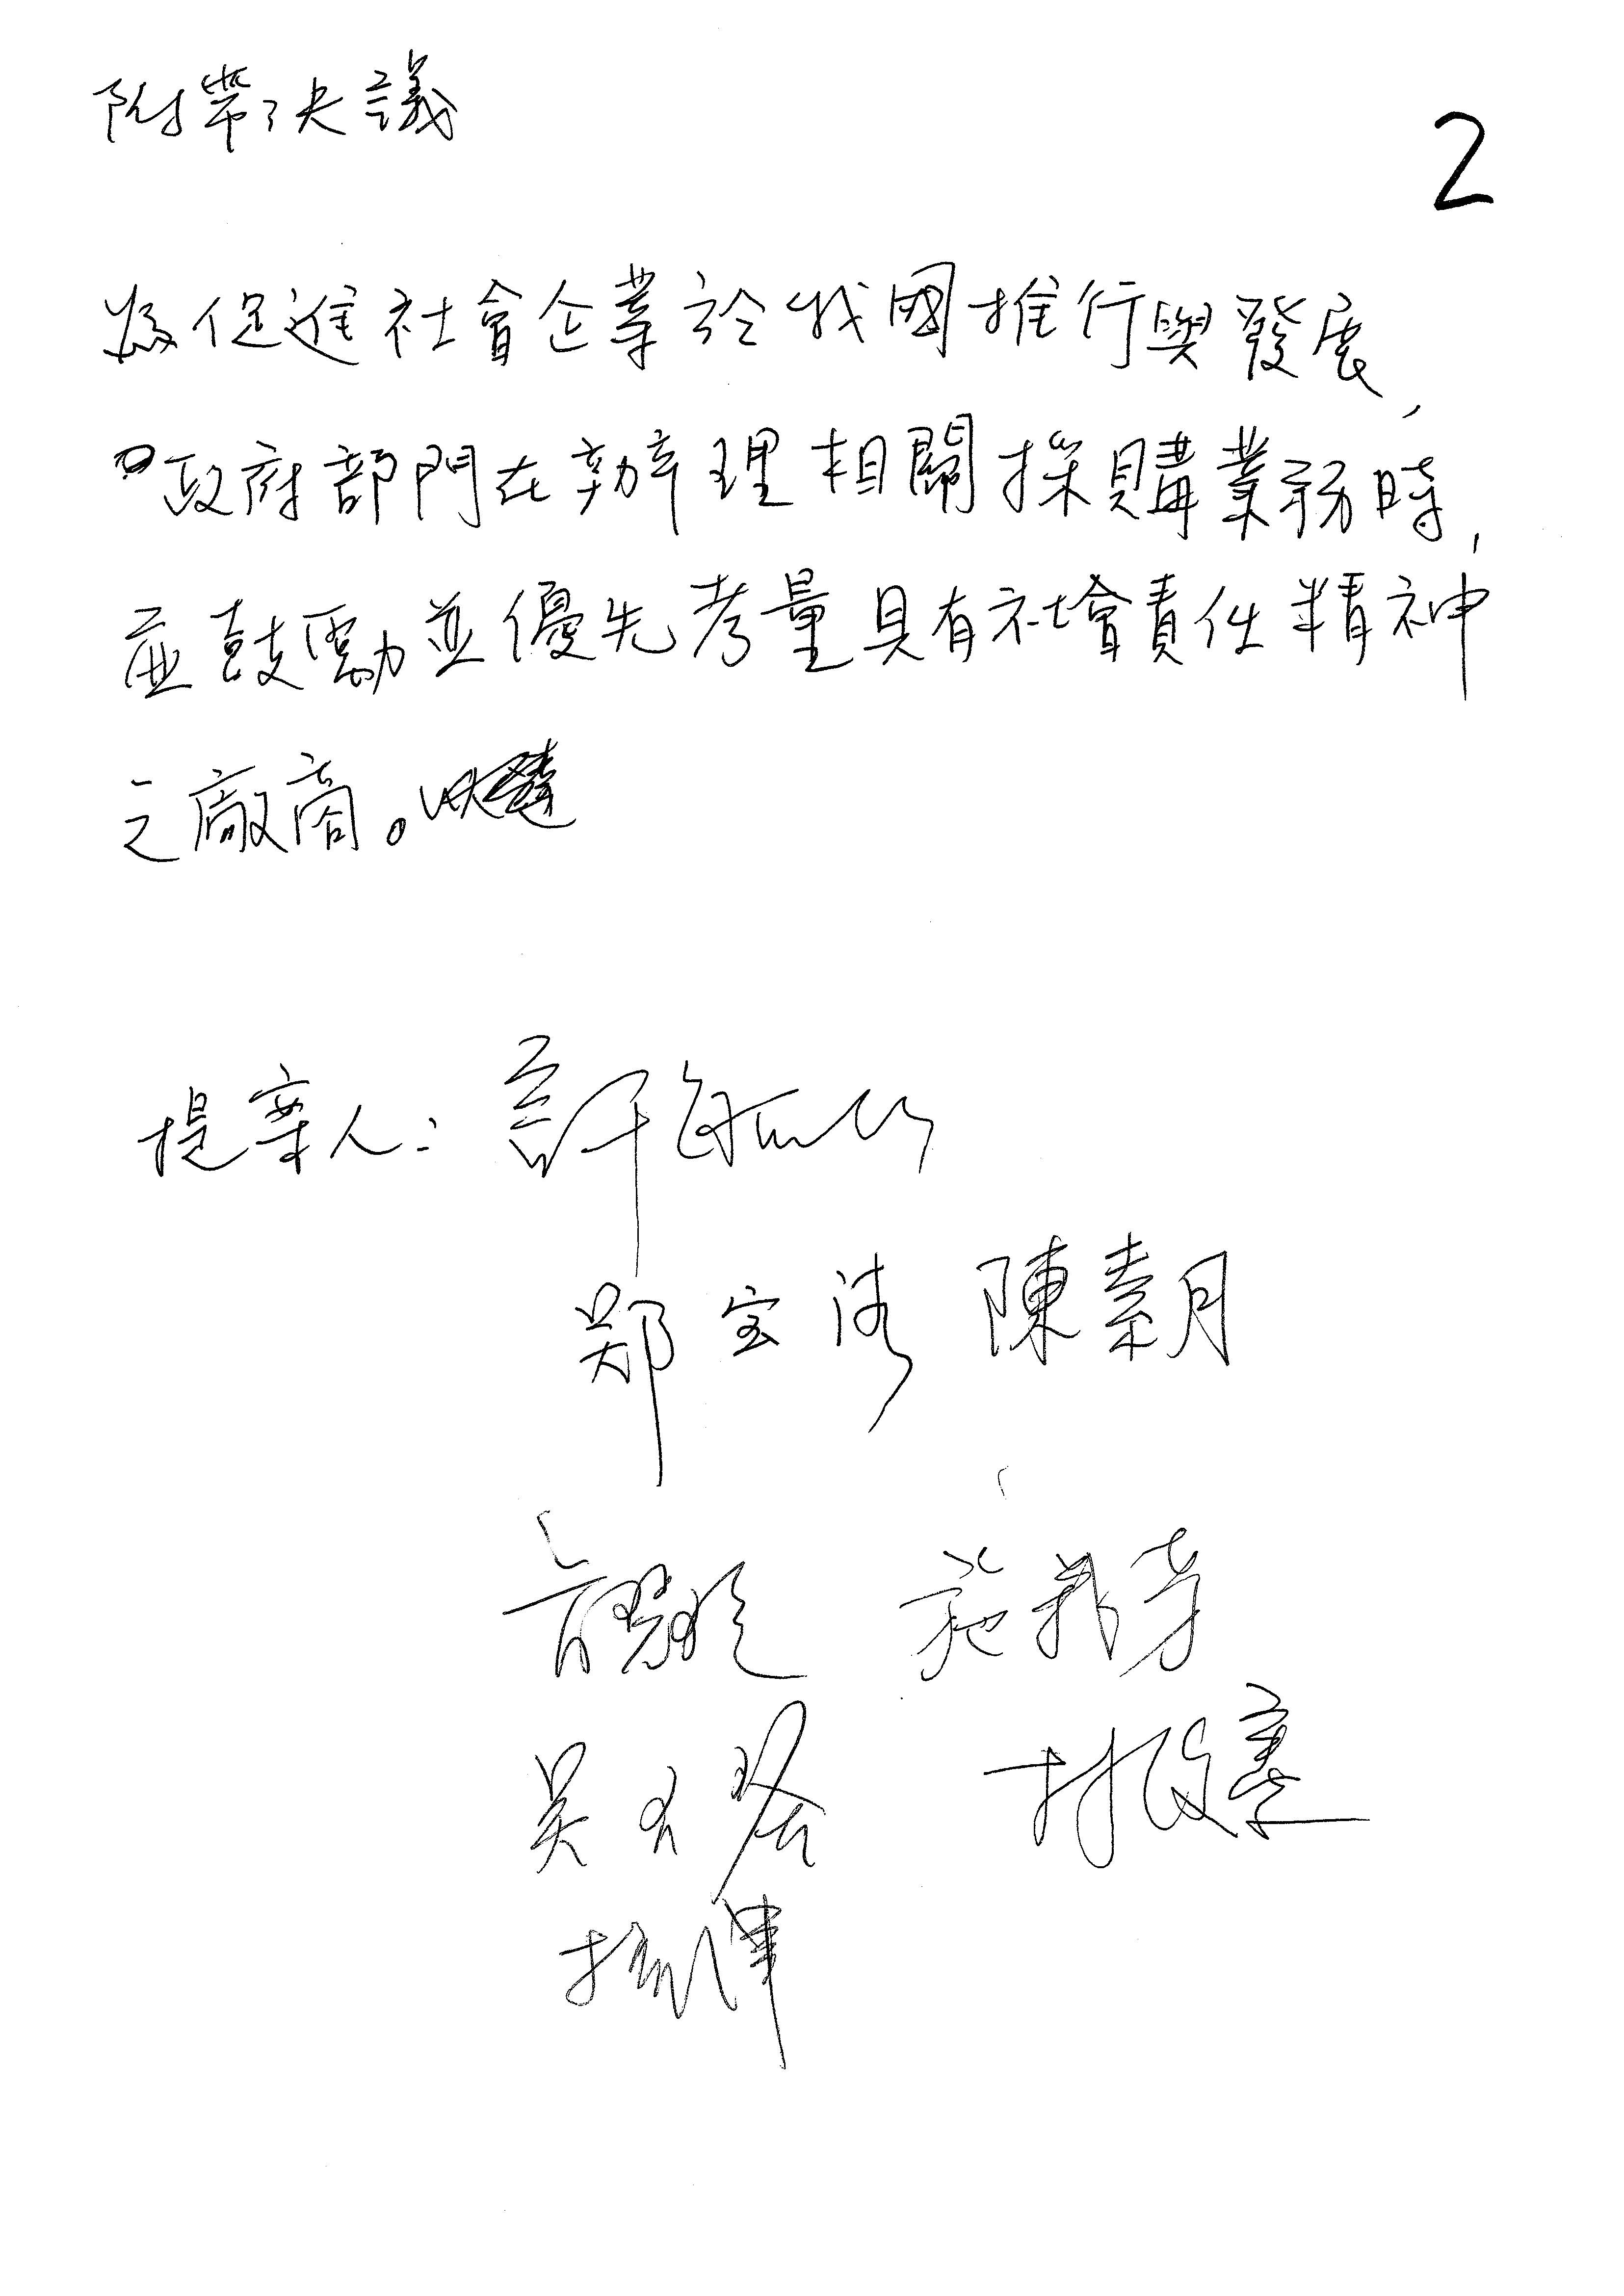 附帶決議
2
為促進社會企業於我國推行與發展,
政府部門在辦理相關採購業務時,
應鼓勵並優先考量具有社會責任精神
之廠商。
提案人:許毓仁
鄭宝清 陳素月
高志鵬 施義芳
吳玉琴 林俊憲